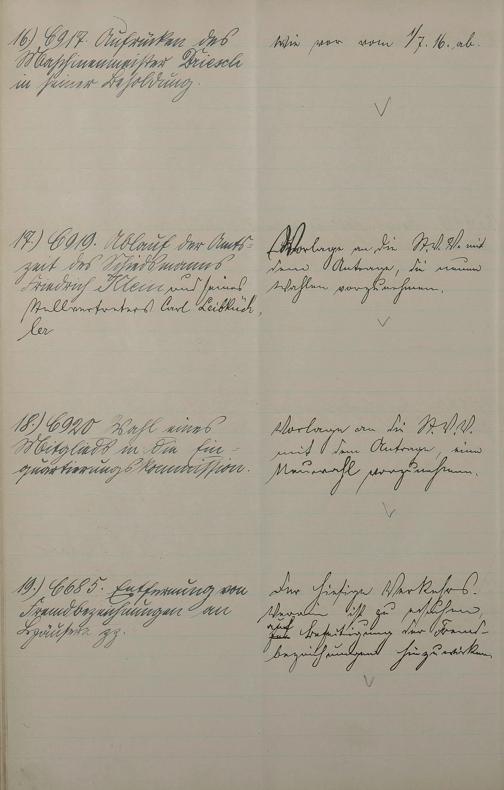 16.) C917. Aufrücken des
Maschinenmeister Driesch
in seiner Besoldung.
wie vor vom 1/7. 16. ab.
17.) C919. Ablauf der Amts-
zeit des Schiedsmanns
Friedrich Klein und seines
Stellvertreters Carl Leibküch
ler
Vorlage an die St.V.V. mit
dem Antrage, die neuen
Wahlen vorzunehmen.
18.) C920 Wahl eines
Mitglieds in die Ein-
quartierungskommission.
Vorlage an die St.V.V.
mit dem Antrage, eine
Neuwahl vorzunehmen.
19.) C685. Entfernung von
Fremdbezeichnungen an
Häusern pp.
Der hiesige Verkehrs-
Verein ist zu ersuchen,
auf Beseitigung der Fremd-
bezeichnungen hinzuwirken